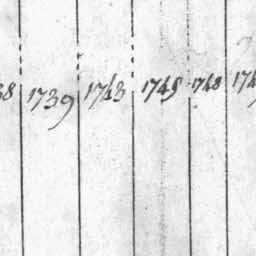 38 1739 1743 1745 1748 174